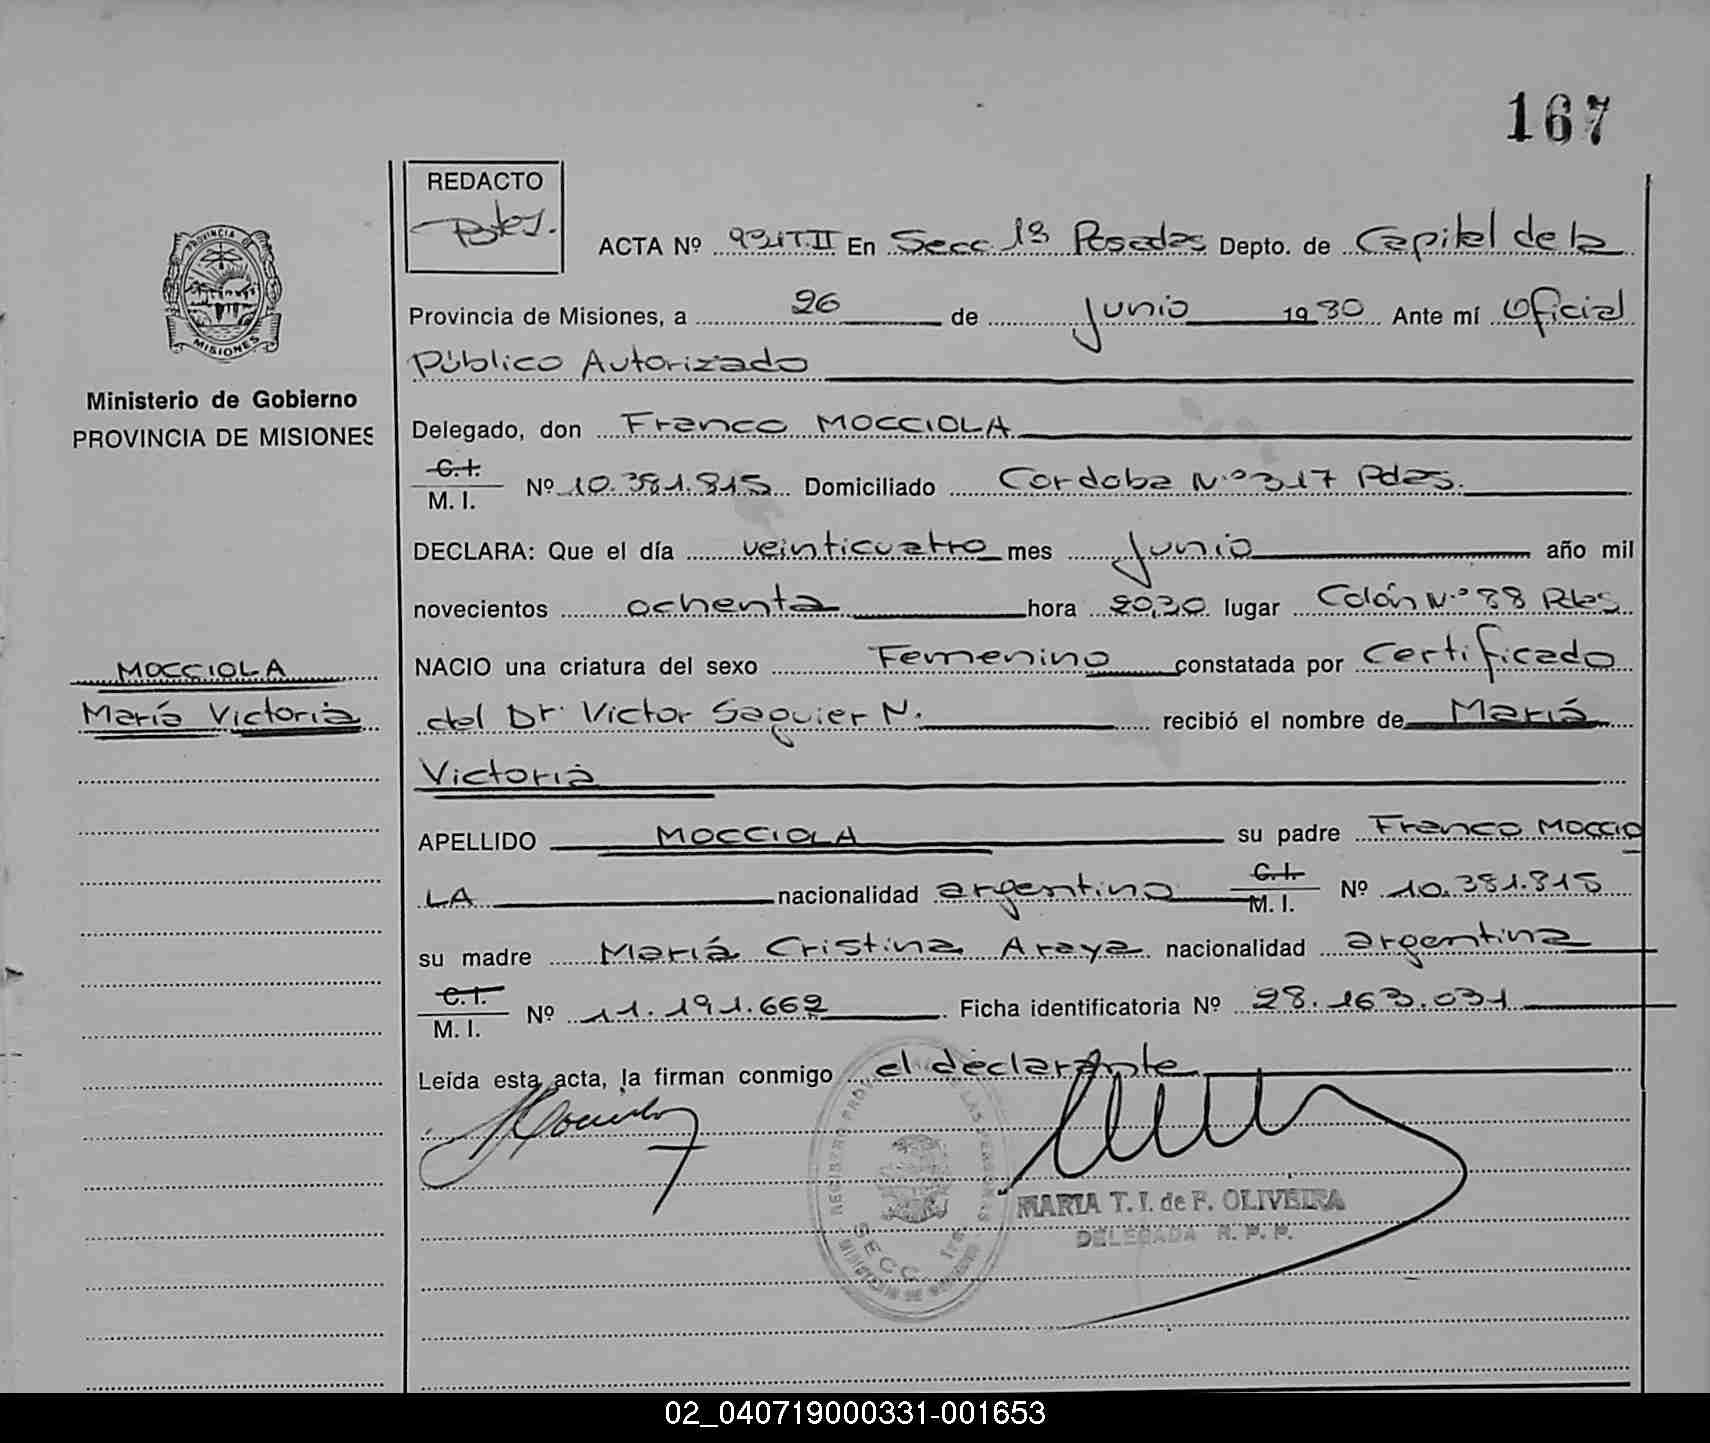 167
REDACTO
PROVINCIA DE
MISIONES
ACTA Nº 931 T.II En Secc. 1ª Posadas Depto. de Capital de la
Provincia de Misiones, a 26 de Junio 1980 Ante mí Oficial
Público Autorizado
Ministerio de Gobierno
PROVINCIA DE MISIONES
Delegado, don Franco MOCCIOLA
C.I.
M. I. Nº 10.381.815 Domiciliado Cordoba Nº 317 Pdas.
DECLARA: Que el día veinticuatro mes Junio año mil
novecientos ochenta hora 20,30 lugar Colón Nº 88 Pdas
MOCCIOLA
María Victoria
NACIO una criatura del sexo Femenino constatada por Certificado
del Dr. Victor Saguier N. recibió el nombre de María
Victoria
APELLIDO MOCCIOLA su padre Franco MOCCIO
LA nacionalidad argentino C.I. M. I. Nº 10.381.815
su madre María Cristina Araya nacionalidad argentina
C.I.
M. I. Nº 11.191.662 Ficha identificatoria Nº 28.163.031
Leída esta acta, la firman conmigo el declarante
MARIA T. I. de F. OLIVEIRA
DELEGADA R. P. P.
SECC. 1ra.
02_040719000331-001653